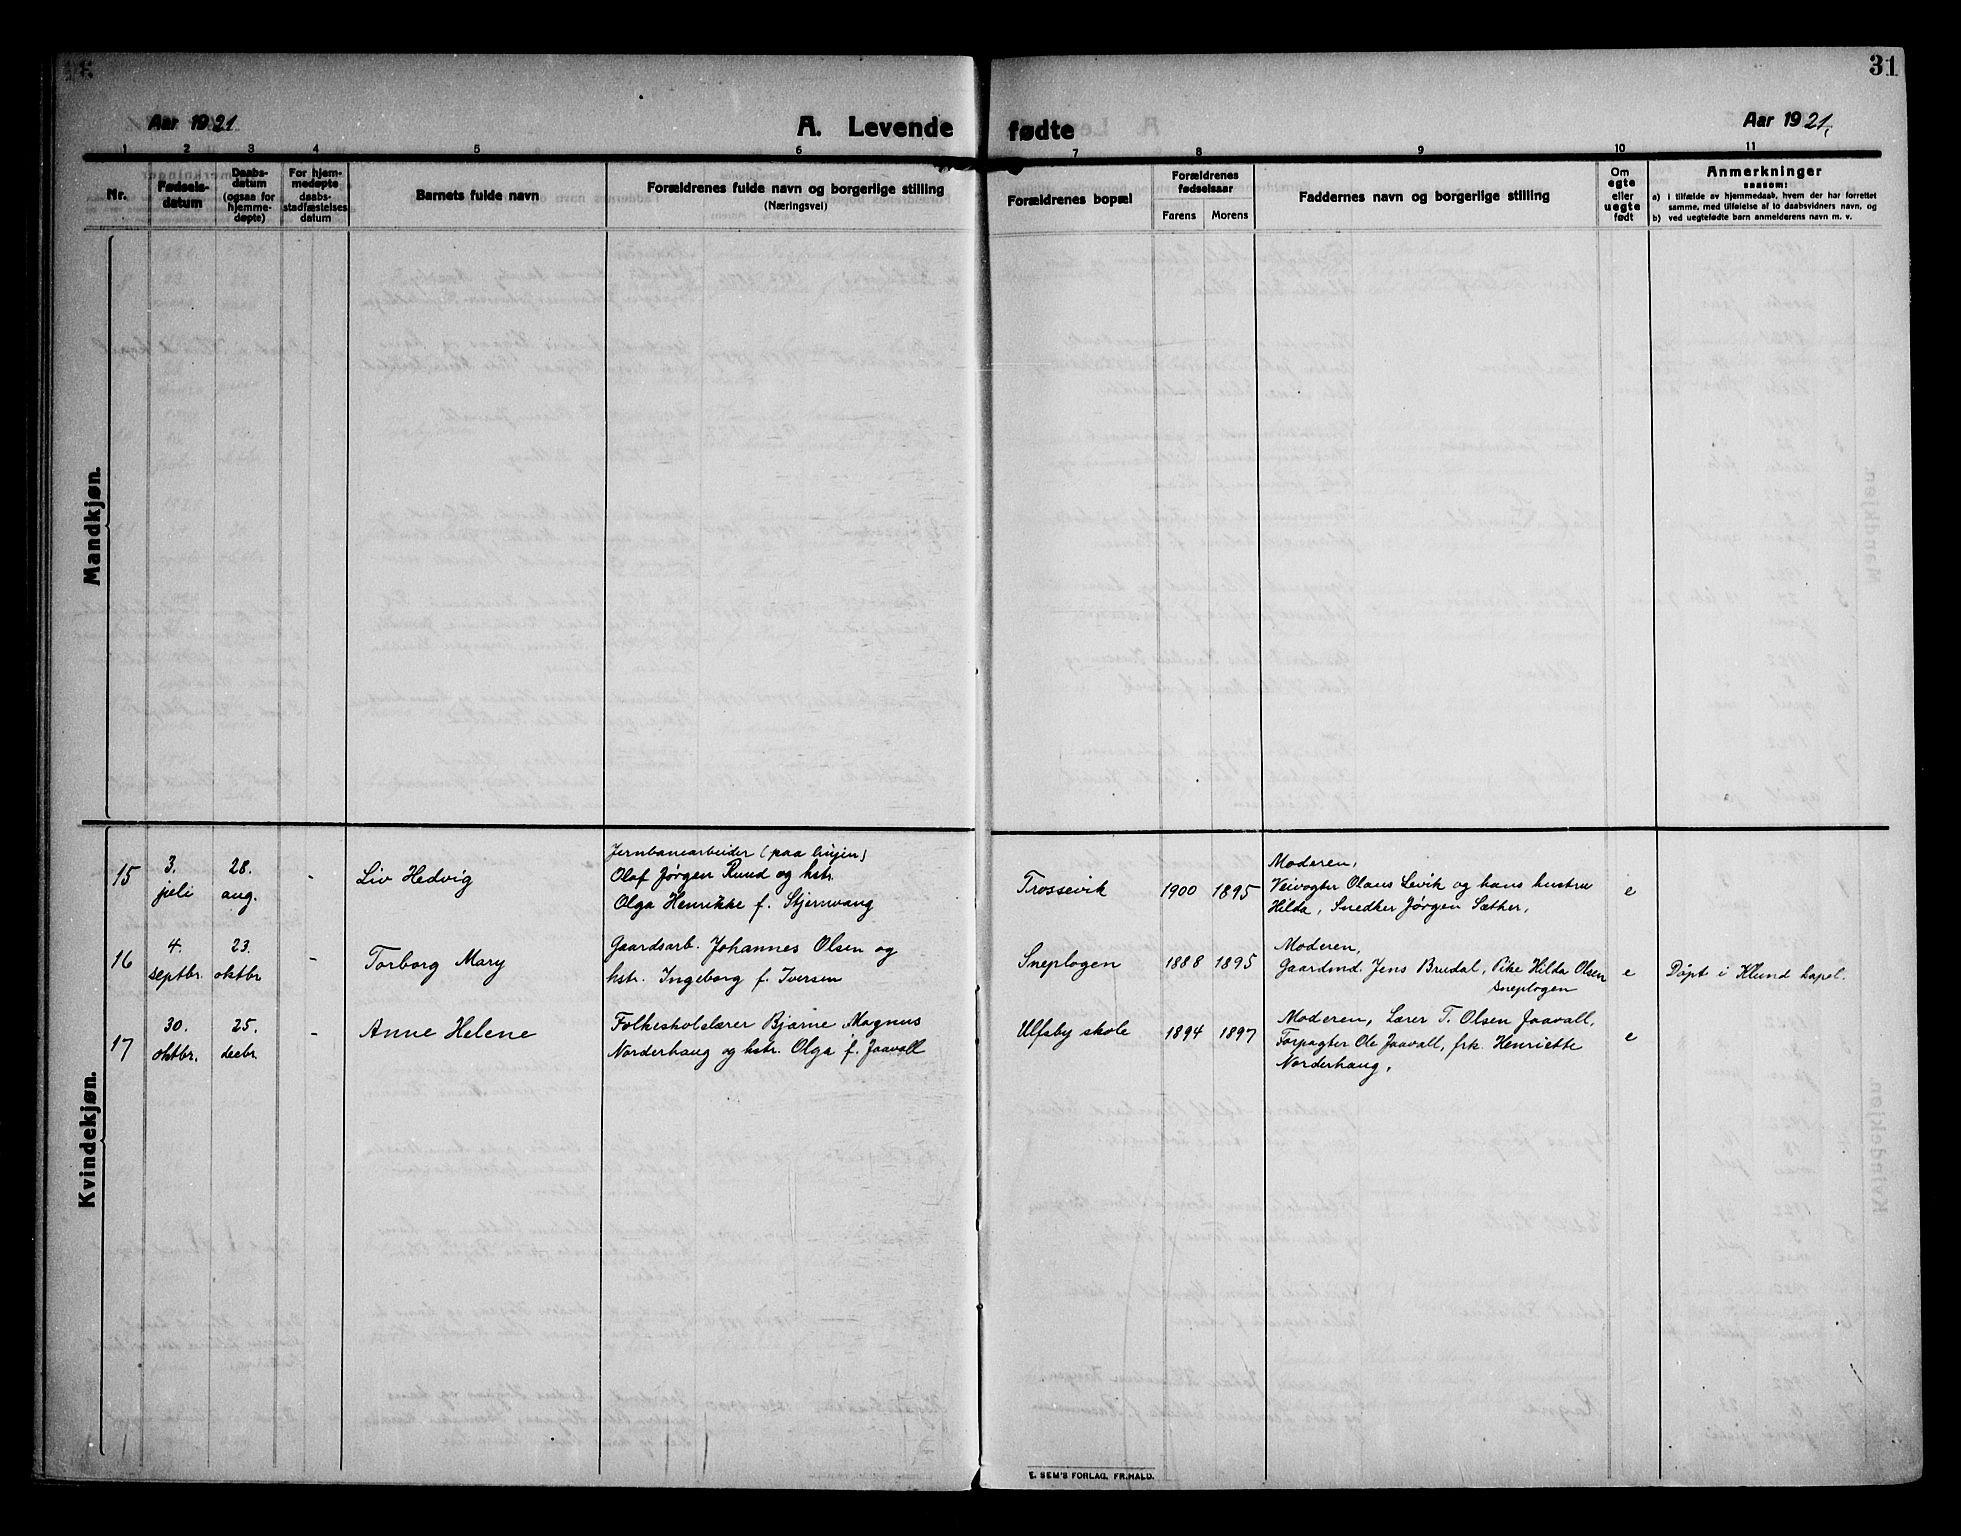 31
Aar 1921
A. Levende fødte
Aar 1921.
1 2 3 4 5 6 7 8 9 10 11
Nr.
Fødsels-
datum
Daabs-
datum
(ogsaa for
hjemme-
døpte)
For hjem-
medøpte
daabs-
stadfæstelses
datum
Barnets fulde navn
Forældrenes fulde navn og borgerlige stilling
(Næringsvei)
Forældrenes bopæl
Forældrenes
fødselsaar
Farens Morens
Faddernes navn og borgerlige stilling
Om
egte
eller
uegte
født
Anmerkninger
saasom:
a) i tilfælde av hjemmedaab, hvem der har forrettet
samme, med tilføielse af to daabsvidners navn, og
b) ved uegtefødte barn anmelderens navn m. v.
Mandkjøn.
Kvindekjøn.
15
3.
juli
28.
aug.
-
Liv Hedvig
Jernbanearbeider (paa linjen)
Olaf Jørgen Ruud og hstr.
Olga Henrikke f. Stjernvang
Trossevik
1900 1895
Moderen,
Veivogter Olaus Levik og hans hustru
Hilda, Snedker Jørgen Sæther,
e
16
4.
septbr.
23.
oktbr
-
Torborg Mary
Gaardsarb. Johannes Olsen og
hstr. Ingeborg f. Iversen
Sneplogen
1888 1895
Moderen,
Gaardmd. Jens Brudal, Pike Hilda Olsen
Sneplogen
e
Døpt i Klund kapel.
17
30.
oktbr.
25.
decbr.
-
Anne Helene
Folkeskolelærer Bjarne Magnus
Norderhaug og hstr. Olga f. Jaavall
Ulfsby skole
1894 1897
Moderen, Lærer T. Olsen Jaavall,
Forpagter Ole Jaavall, frk. Henriette
Norderhaug.
e
E. SEM'S FORLAG, FR.HALD.